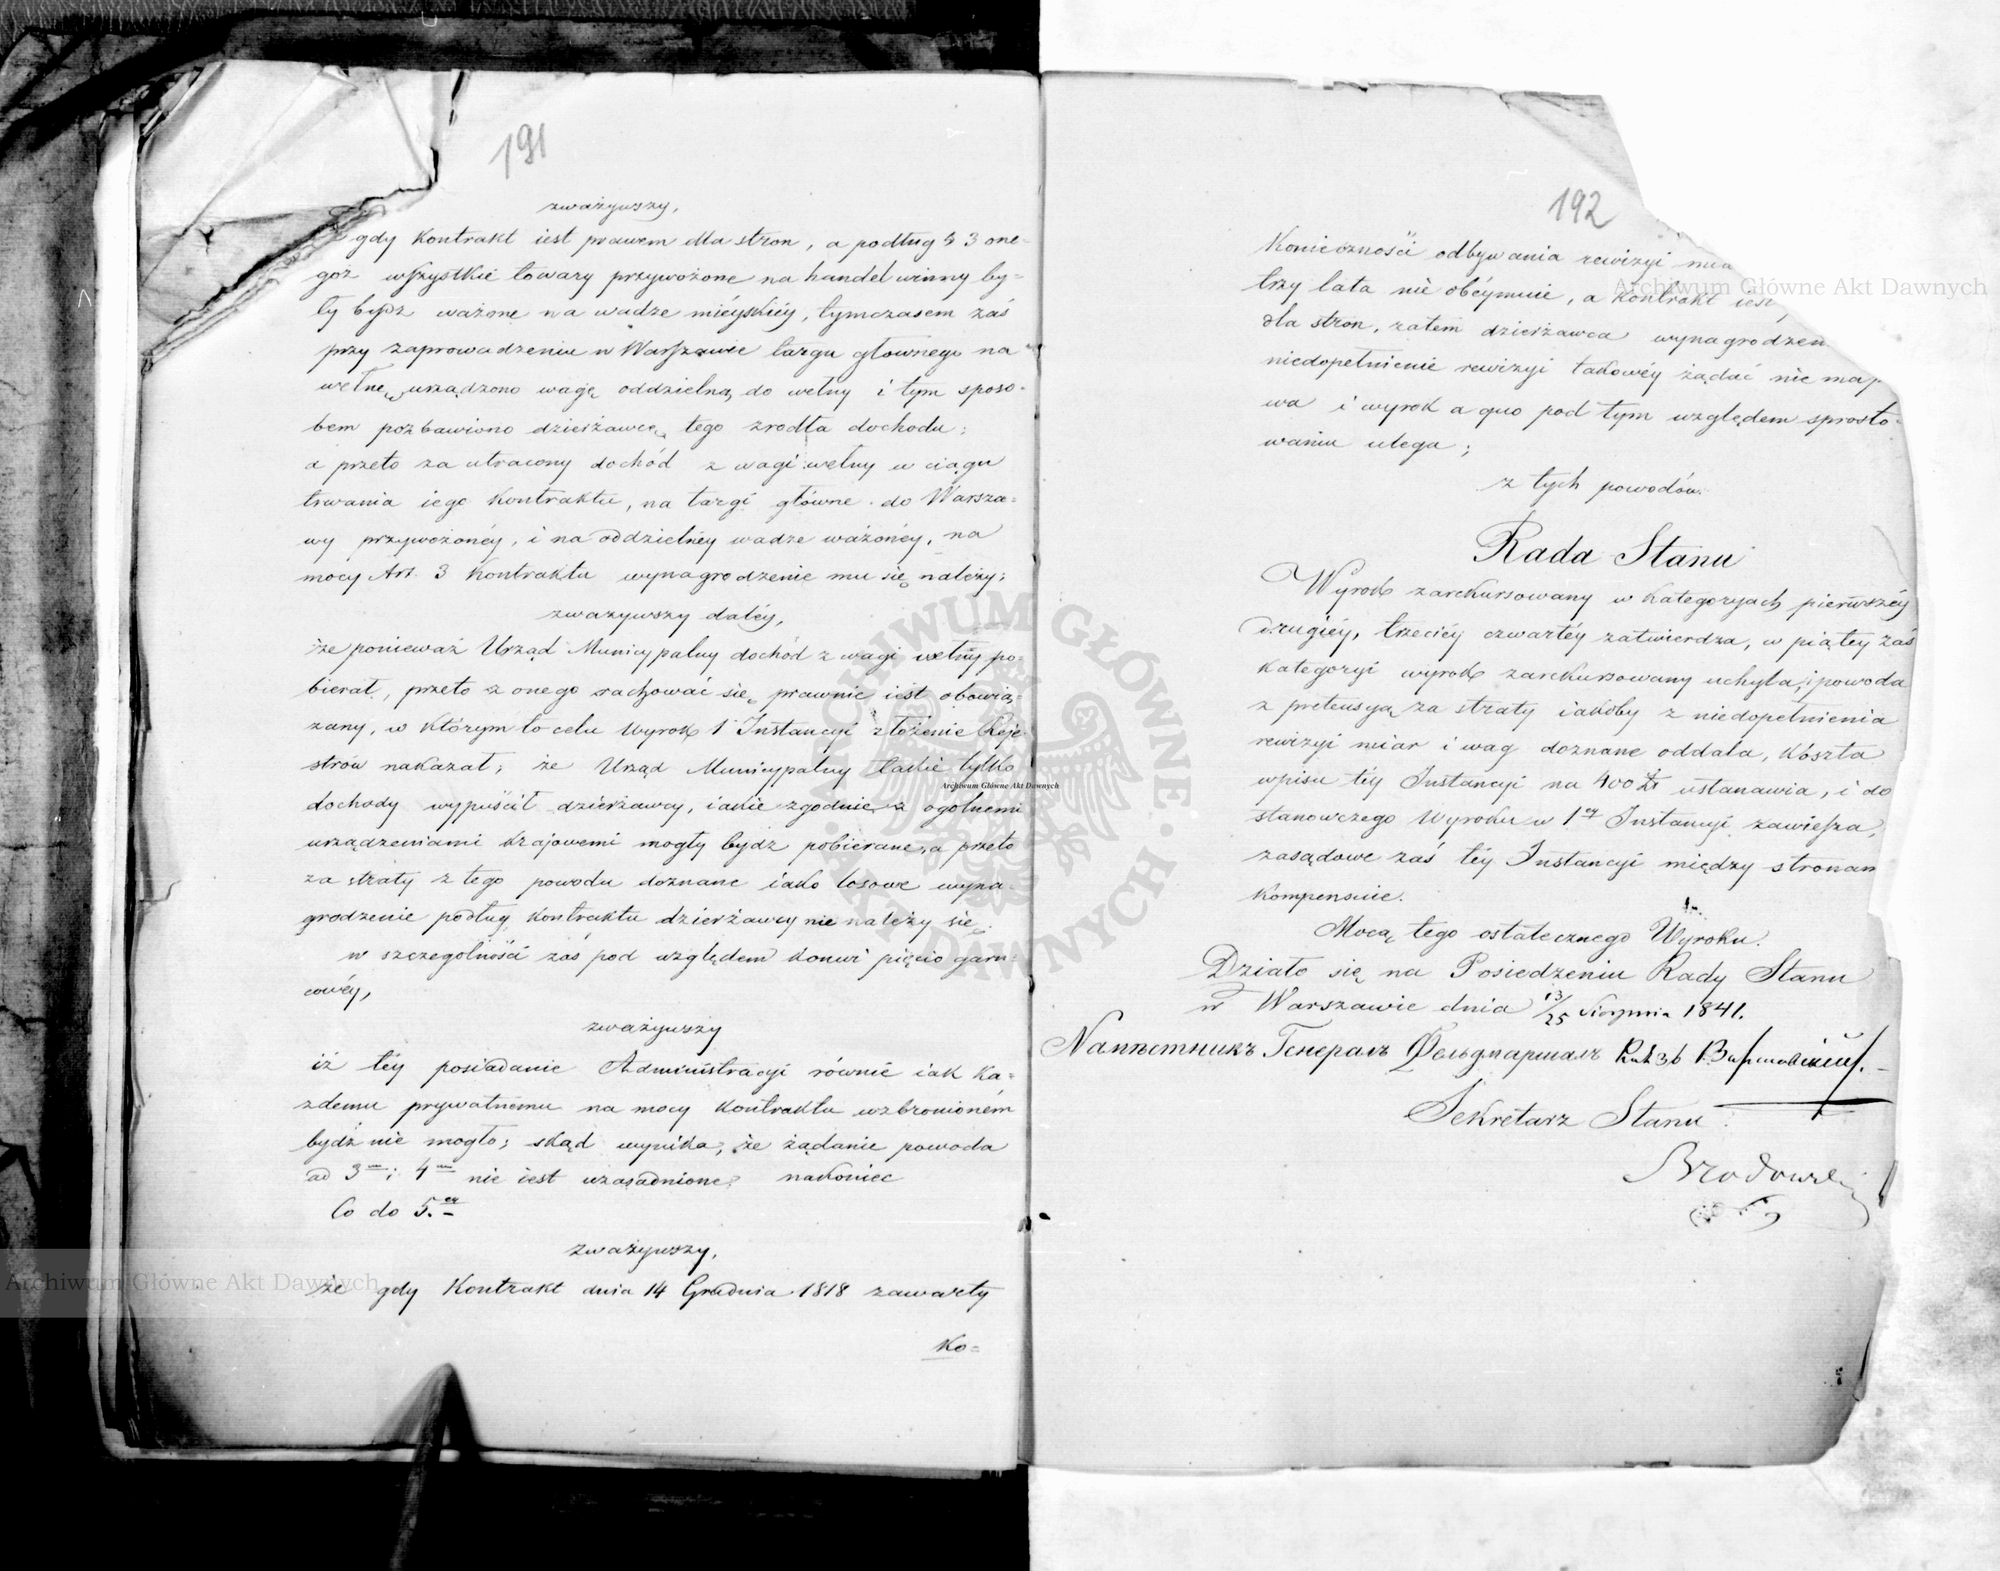 191
zważywszy,
gdy kontrakt iest prawem dla stron, a podług § 3 one-
goż wszystkie towary przywożone na handel winny by-
ły bydź ważone na wadze miéyskiéy, tymczasem zaś
przy zaprowadzeniu w Warszawie targu głównego na
wełnę, urządzono wagę oddzielną do wełny i tym sposo-
bem pozbawiono dzierżawcę tego zrodła dochodu;
a przeto za utracony dochód z wagi wełny w ciągu
trwania iego kontraktu, na targi główne do Warsza-
wy przywożonéy, i na oddzielnéy wadze ważonéy, na
mocy Art. 3 kontraktu wynagrodzenie mu się należy;
zważywszy daléy,
że ponieważ Urząd Municypalny dochód z wagi wełny po-
bierał, przeto z onego rachować się prawnie iest obowią-
zany, w którym to celu Wyrok 1 Instancyi złożenie Reje
strów nakazał; że Urząd Municypalny takie tylko
dochody wypuścił dzierżawcy, iakie zgodnie z ogólnemi
urządzeniami krajowemi mogły bydź pobierane, a przeto
za straty z tego powodu doznane iako losowe wyna-
grodzenie podług kontraktu dzierżawcy nie należy się.
w szczególności zaś pod względem konwi pięcio garn-
cowéy,
zważywszy
iż téy posiadanie Administracyi równie iak ka-
żdemu prywatnému na mocy kontraktu wzbronioném
bydź nie mogło; skąd wynika, że żądanie powoda
ad 3m i 4m nie iest uzasadnione; nakoniec
Co do 5.go
zważywszy,
że gdy Kontrakt dnia 14 Grudnia 1818 zawarty
Ko=
192
Konieczności odbywania rewizyi mia
trzy lata nie obéymuie, a kontrakt iest
dla stron, zatém dzierżawca wynagrodzen
niedopełnienie rewizyi takowéy żądać nie ma p
wa i wyrok a quo pod tym względem sprosto-
waniu ulega;
z tych powodów
Rada Stanu
Wyrok zarekursowany w kategoryach pierwszéy
drugiéy, trzeciéy czwartéy zatwierdza, w piątey zaś
kategoryi wyrok zarekursowany uchyla, i powoda
z pretensyą za straty iakoby z niedopełnienia
rewizyi miar i wag doznane oddala, koszta
wpisu téy Instancyi na 400 Zł ustanawia, i do
stanowczego Wyroku w 1éy Instancyi zawiesza,
zasądowe zaś téy Instancyi między stronam
kompensuie.
Mocą tego ostatecznego Wyroku.
Działo się na Posiedzeniu Rady Stanu
w Warszawie dnia 13/25 Sierpnia 1841.
Намѣстникъ Генералъ Фельдмаршалъ
Sekretarz Stanu
Brodowski
Archiwum Główne Akt Dawnych
Archiwum Główne Akt Dawnych
Archiwum Główne Akt Dawnych
ARCHIWUM GŁÓWNE · AKT DAWNYCH ·